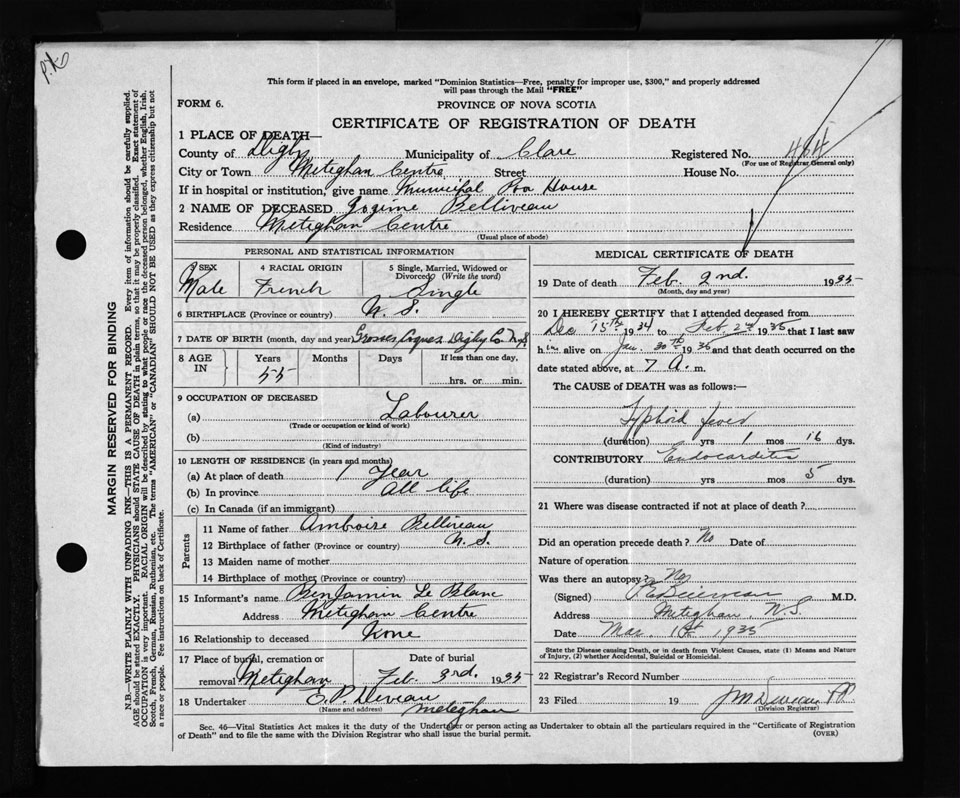 This form if placed in an envelope, marked "Dominion Statistics—Free, penalty for improper use, $300," and properly addressed
will pass through the Mail "FREE"
FORM 6. PROVINCE OF NOVA SCOTIA
CERTIFICATE OF REGISTRATION OF DEATH
1 PLACE OF DEATH—
County of Digby Municipality of Clare Registered No. 484
(For use of Registrar General only)
City or Town Meteghan Centre Street House No.
If in hospital or institution, give name Municipal Poor House
2 NAME OF DECEASED Belliveau
Residence Meteghan Centre
(Usual place of abode)
PERSONAL AND STATISTICAL INFORMATION
3 SEX 4 RACIAL ORIGIN 5 Single, Married, Widowed or Divorced (Write the word)
Male French Single
6 BIRTHPLACE (Province or country) N. S.
7 DATE OF BIRTH (month, day and year) Grosses Coques Digby Co N.S
8 AGE IN Years Months Days If less than one day,
55 hrs. or min.
9 OCCUPATION OF DECEASED
(a) Labourer
(Trade or occupation or kind of work)
(b)
(Kind of industry)
10 LENGTH OF RESIDENCE (in years and months)
(a) At place of death 1 Year
(b) In province All life
(c) In Canada (if an immigrant)
Parents
11 Name of father Ambroise Belliveau
12 Birthplace of father (Province or country) N. S.
13 Maiden name of mother
14 Birthplace of mother (Province or country)
15 Informant's name Benjamin Le Blanc
Address Meteghan Centre
16 Relationship to deceased None
17 Place of burial, cremation or removal Meteghan Date of burial Feb 3rd. 1935
18 Undertaker E. P. Deveau
(Name and address) Meteghan
MEDICAL CERTIFICATE OF DEATH
19 Date of death Feb. 2nd. 1935
(Month, day and year)
20 I HEREBY CERTIFY that I attended deceased from
Dec 15th 1934 to Feb. 2nd 1935 that I last saw
him alive on Jan. 30th 1935 and that death occurred on the
date stated above, at 7 A. m.
The CAUSE of DEATH was as follows:—
Typhoid fever
(duration) yrs 1 mos 16 dys.
CONTRIBUTORY Endocarditis
(duration) yrs mos 5 dys.
21 Where was disease contracted if not at place of death?
Did an operation precede death? No Date of
Nature of operation
Was there an autopsy? No
(Signed) M.D.
Address Meteghan N.S.
Date Mar. 1st 1935
State the Disease causing Death, or in death from Violent Causes, state (1) Means and Nature
of Injury, (2) whether Accidental, Suicidal or Homicidal.
22 Registrar's Record Number
23 Filed 19 J M Deveau
(Division Registrar)
Sec. 46—Vital Statistics Act makes it the duty of the Undertaker or person acting as Undertaker to obtain all the particulars required in the "Certificate of Registration
of Death" and to file the same with the Division Registrar who shall issue the burial permit. (OVER)
MARGIN RESERVED FOR BINDING
N.B.—WRITE PLAINLY WITH UNFADING INK—THIS IS A PERMANENT RECORD. Every item of information should be carefully supplied.
AGE should be stated EXACTLY. PHYSICIANS should STATE CAUSE OF DEATH in plain terms, so that it may be properly classified. Exact statement of
OCCUPATION is very important. RACIAL ORIGIN will be described by stating to what people or race the deceased person belonged, whether English, Irish,
Scotch, French, German, Russian, Ruthenian, etc. The terms "AMERICAN" or "CANADIAN" SHOULD NOT BE USED as they express citizenship but not
a race or people. See instructions on back of Certificate.